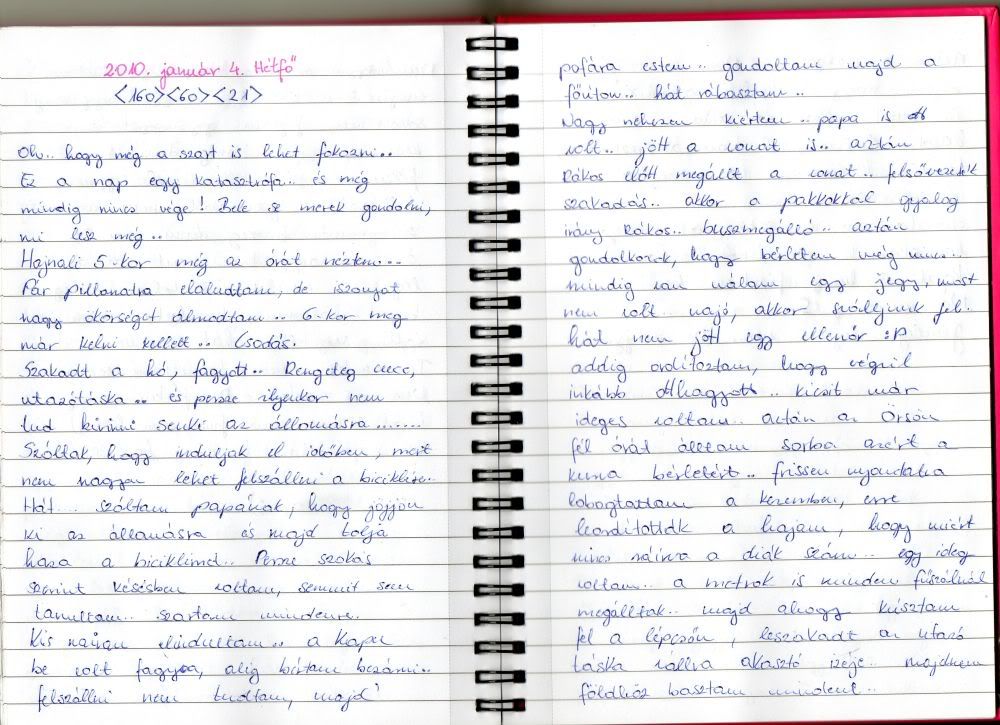 2010. január 4. Hétfő
<160><60><21>
Oh.. hogy még a szart is lehet fokozni..
Ez a nap egy katasztrófa.. és még
mindig nincs vége! Bele se merek gondolni,
mi lesz még..
Hajnali 5-kor még az órát néztem...
Pár pillanatra elaludtam, de iszonyat
nagy ökörséget álmodtam.. 6-kor meg
már kelni kellett.. Csodás.
Szakadt a hó, fagyott.. Rengeteg cucc,
utazótáska.. és persze ilyenkor nem
tud kivinni senki az állomásra.......
Szóltak, hogy induljak el időben, mert
nem nagyon lehet felszállni a biciklire..
Hát... szóltam papának, hogy jöjjön
ki az állomásra és majd tolja
haza a biciklimet.. Persze szokás
szerint késésben voltam, semmit sem
tanultam.. szartam mindenre.
Kis naívan elindultam.. a kapu
be volt fagyva, alig bírtam bezárni..
felszállni nem tudtam, majd
pofára estem.. gondoltam majd a
főúton.. hát rábasztam..
Nagy nehezen kiértem.. papa is
volt.. jött a vonat is.. aztán
Rákos előtt megállt a vonat.. felsővezeték
szakadás.. akkor a pakkokkal gyalog
irány Rákos.. buszmegálló.. aztán
gondolkozok, hogy bérletem még nincs...
mindig van nálam egy jegy, most
nem volt.. najó, akkor szálljunk fel..
hát nem jött egy ellenőr :P
addig ordítoztam, hogy végül
inkább elhagyott.. kicsit már
ideges voltam.. aztán az Örsön
fél órát álltam sorba azért a
kurva bérletért.. frissen nyomtatva
lobogtattam a kezemben, erre
leordították a hajam, hogy miért
nincs ráírva a diák szám.. egy ideg
voltam.. a metrok is minden fűszálnál
megálltak.. majd ahogy kúsztam
fel a lépcsőn, leszakadt az utazó
táska vállra akasztó izéje.. majdnem
földhöz basztam mindent..